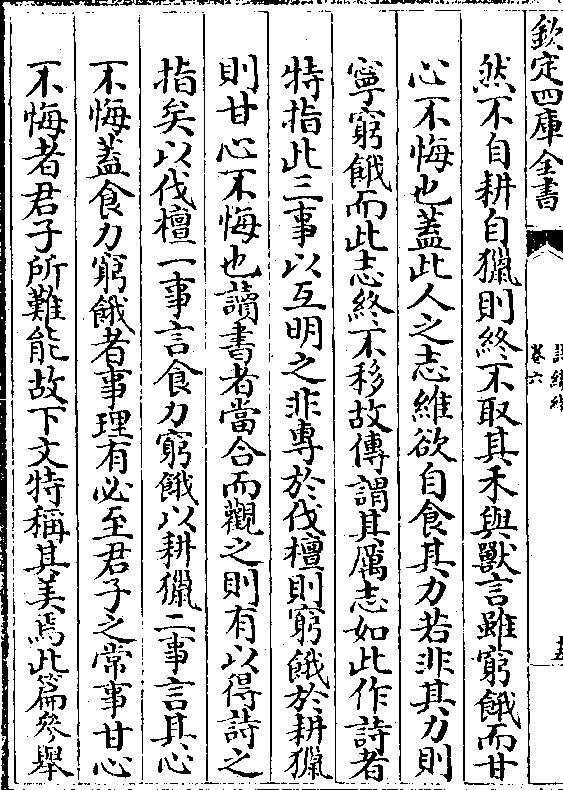 欽定四庫全書
卷六
然不自耕自獵則終不取其禾與獸言雖窮餓而甘
心不悔也蓋此人之志維欲自食其力若非其力則
寧窮餓而此志終不移故傳謂其厲志如此作詩者
特指此三事以互明之非專於伐檀則窮餓於耕獵
則甘心不悔也讀書者當合而觀之則有以得詩之
指矣以伐檀一事言食力窮餓以耕獵二事言其心
不悔蓋食力窮餓者事理有必至君子之常事甘心
不悔者君子所難能故下文特稱其美焉此篇參舉